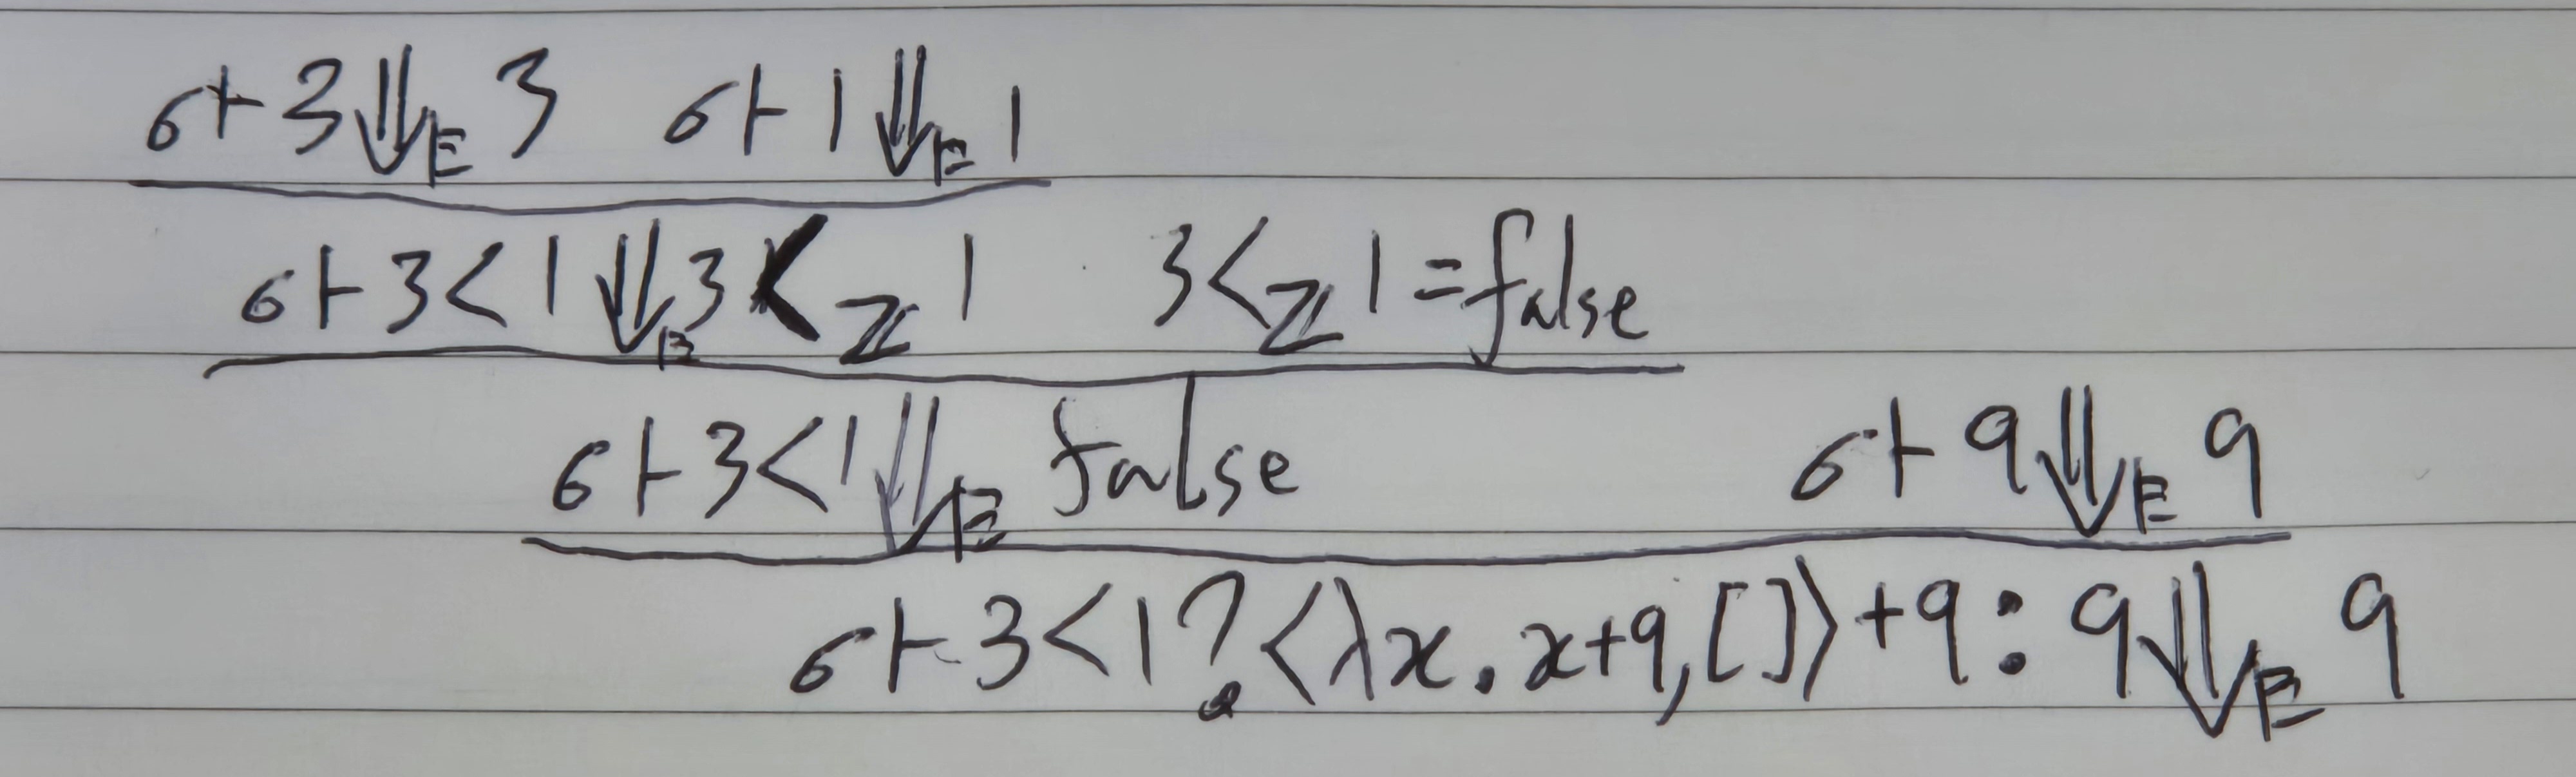 σ ⊢ 3 ⇓_E 3 σ ⊢ 1 ⇓_E 1
σ ⊢ 3 < 1 ⇓_E 3 <_Z 1 3 <_Z 1 = false
σ ⊢ 3 < 1 ⇓_E false σ ⊢ 9 ⇓_E 9
σ ⊢ 3 < 1 ? ⟨λx. x+9, []⟩ + 9 : 9 ⇓_E 9